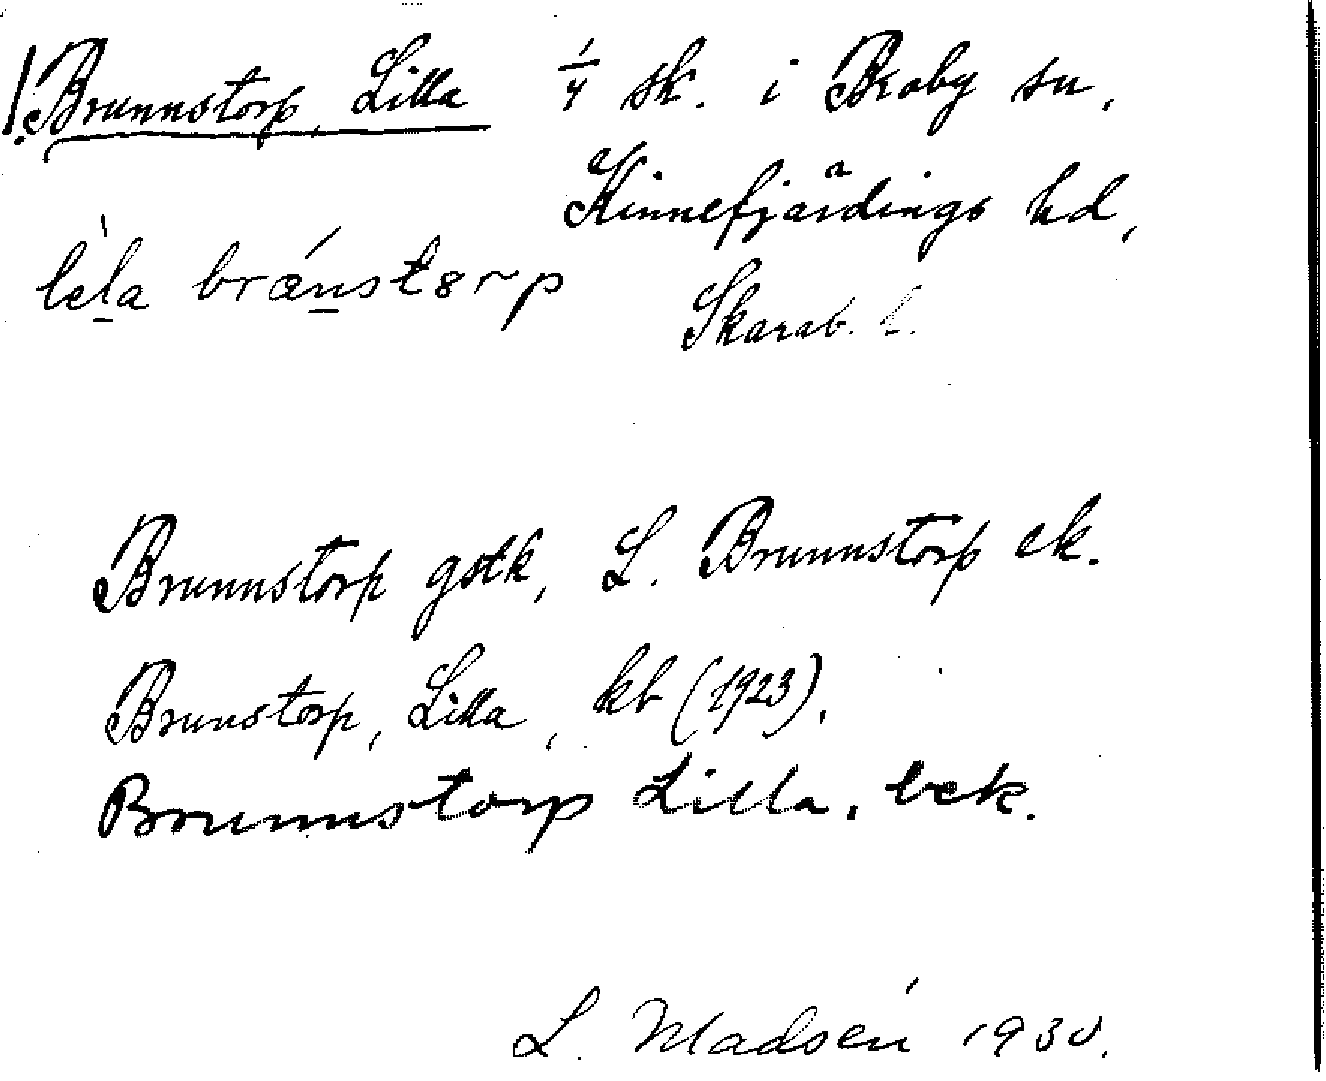 ! Brunnstorp, Lilla 1/4 sk. i Broby sn,
Kinnefjärdings hd,
lela brænstørp
Skarab. l.
Brunnstorp gstk, L. Brunnstorp ek.
Brunstorp, Lilla, kb (1923).
Brunnstorp Lilla. bek.
L. Madsén 1930.